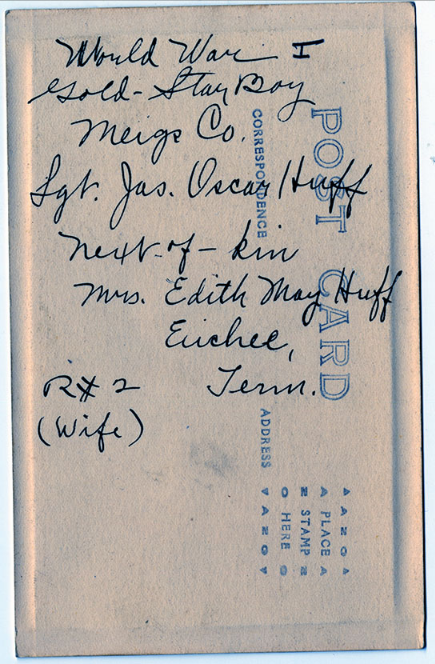 World War I
Gold-Star Boy
Meigs Co.
Sgt. Jas. Oscar Huff
next-of-kin
Mrs. Edith May Huff
Euchee,
R#2 Tenn.
(Wife)
POST CARD
CORRESPONDENCE
ADDRESS
AZO
PLACE
STAMP
HERE
AZO